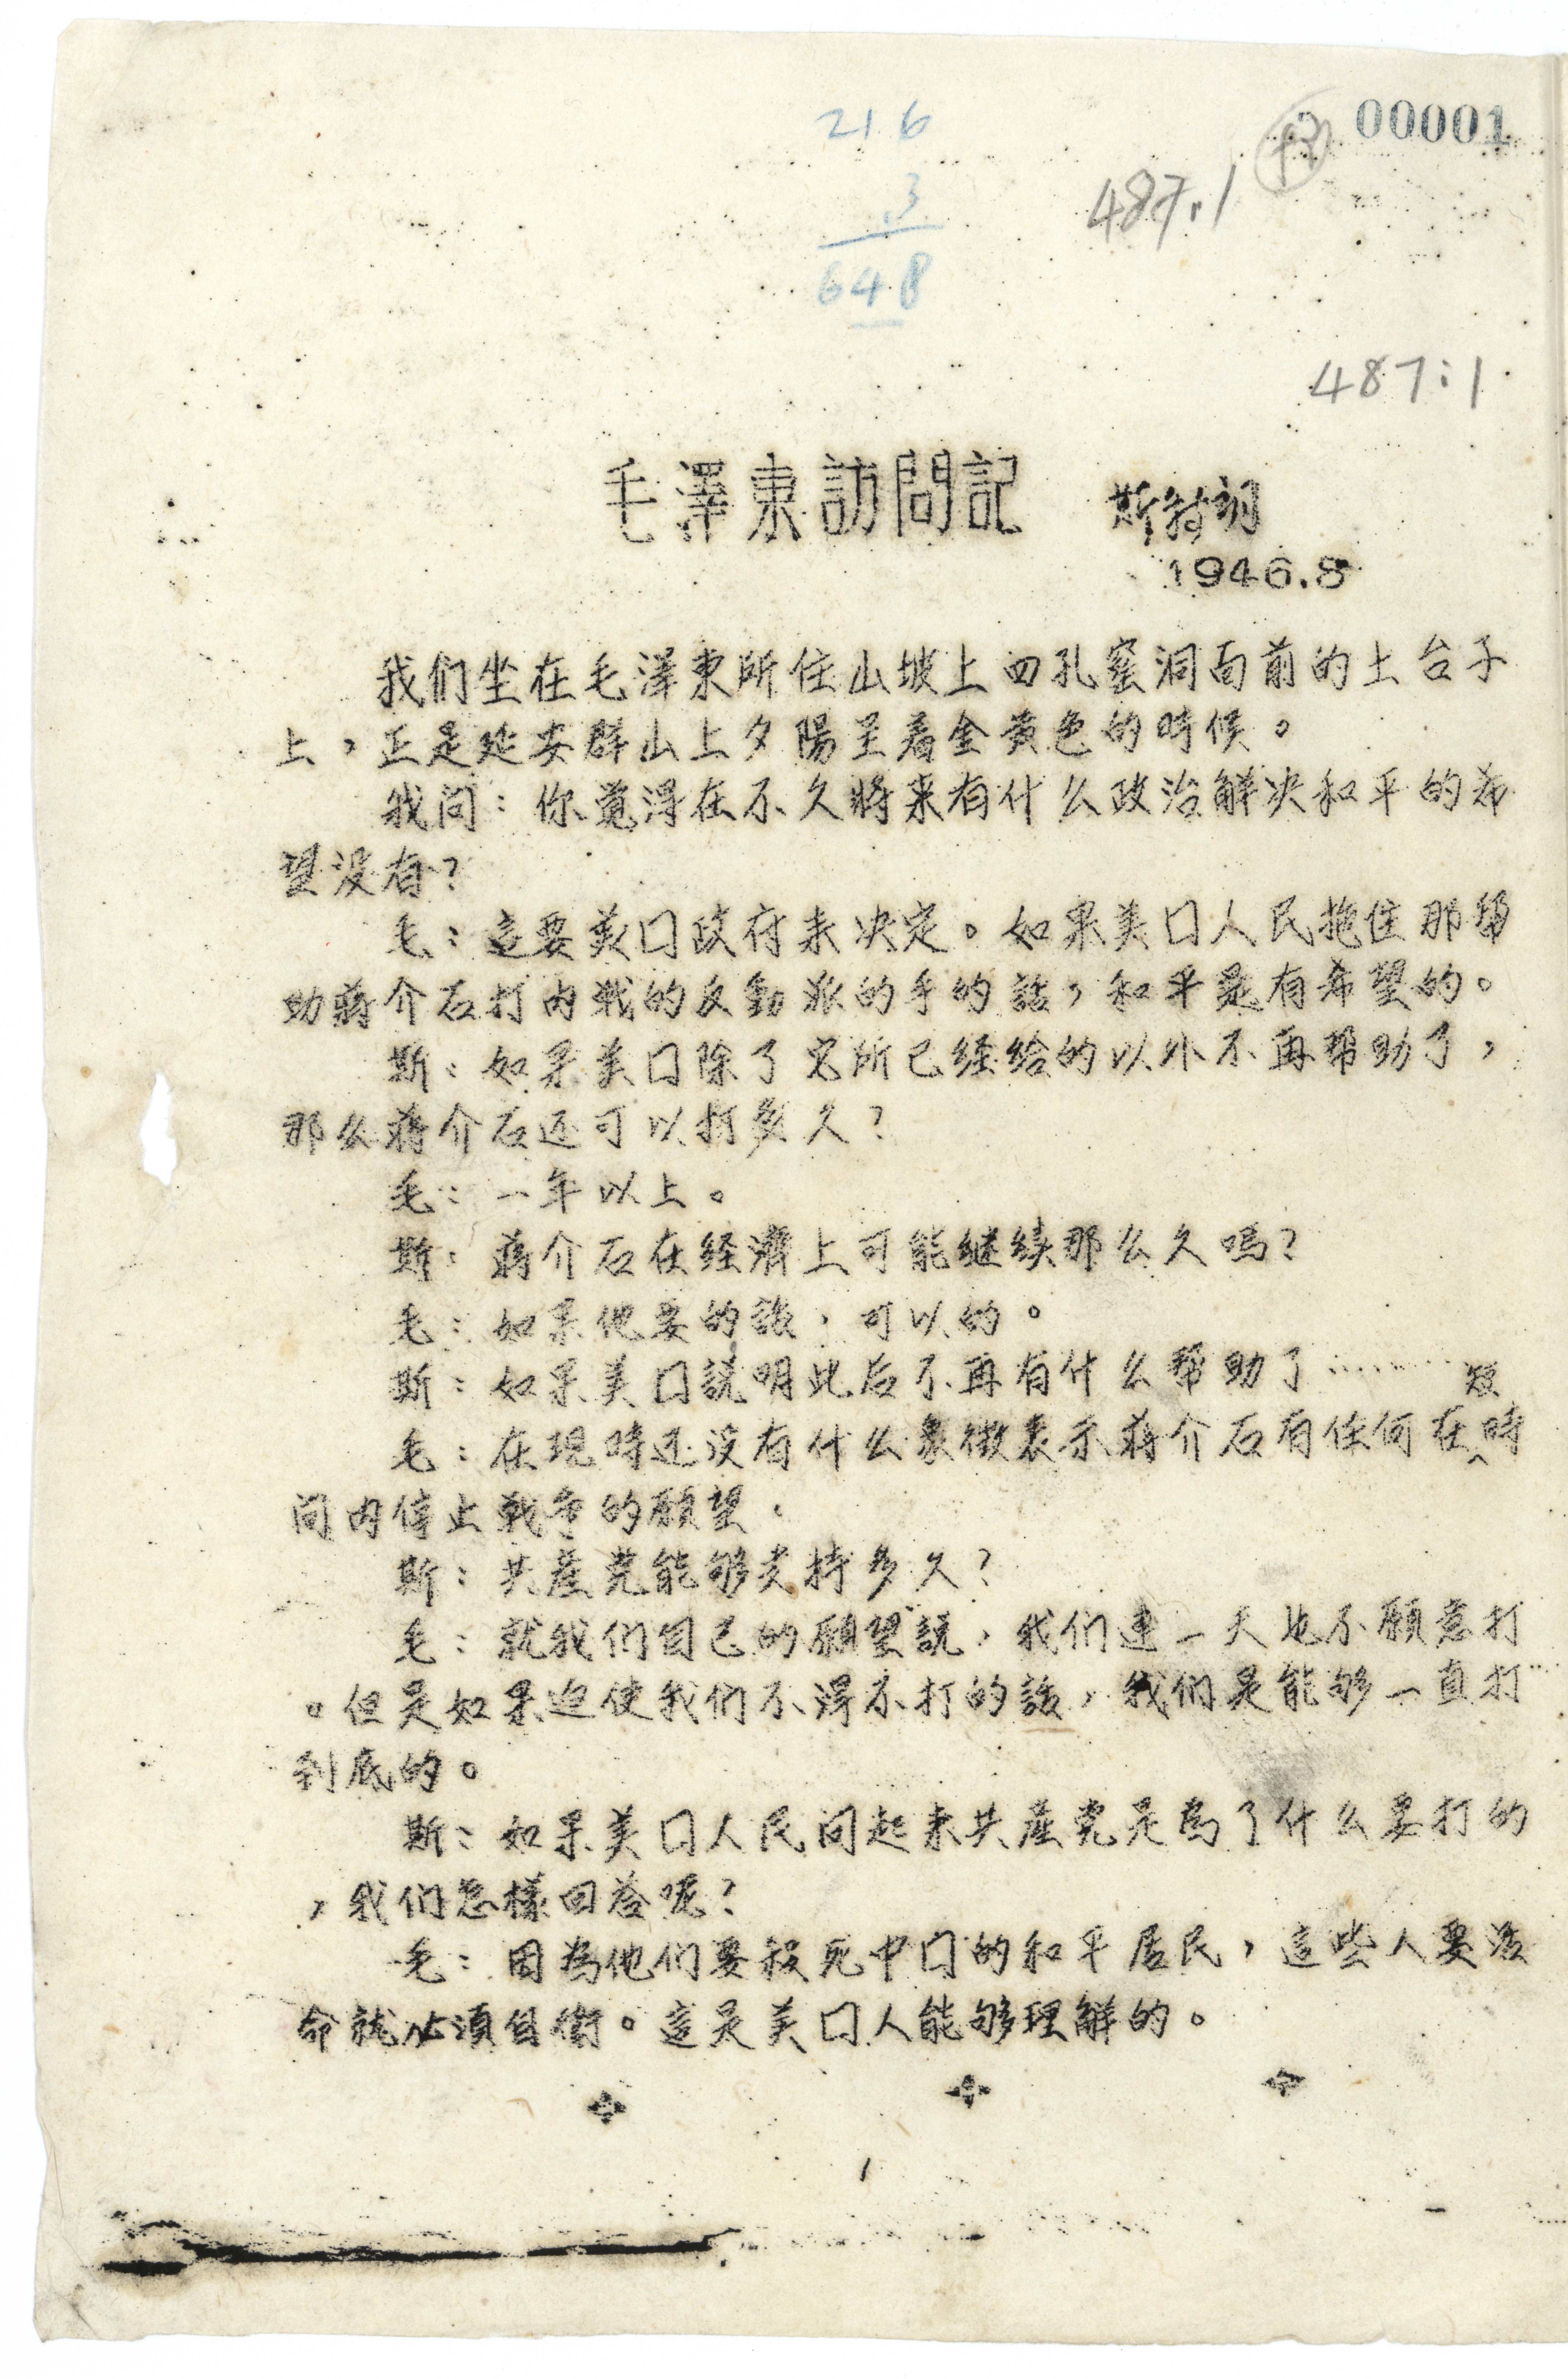 00001
216
3
648
487.1
487:1
毛澤東訪問記 斯特朗
1946.8
我们坐在毛澤東所住山坡上四孔窑洞面前的土台子
上，正是延安群山上夕陽呈着金黄色的時候。
我问：你覺得在不久將来有什么政治解决和平的希
望没有？
毛：這要美囗政府来决定。如果美囗人民拖住那帮
助蔣介石打内战的反動派的手的話，和平是有希望的。
斯：如果美囗除了它所已经给的以外不再帮助了，
那么蔣介石还可以打多久？
毛：一年以上。
斯：蔣介石在经濟上可能继续那么久嗎？
毛：如果他要的話，可以的。
斯：如果美囗說明此后不再有什么帮助了………
毛：在現時还没有什么象徵表示蔣介石有任何在短時
间内停止战争的願望。
斯：共産党能够支持多久？
毛：就我们自己的願望說，我们連一天也不願意打
。但是如果迫使我们不得不打的話，我们是能够一直打
到底的。
斯：如果美囗人民问起来共產党是為了什么要打的
，我们怎樣回答呢？
毛：因為他们要殺死中囗的和平居民，這些人要活
命就必須自衛。這是美囗人能够理解的。
1